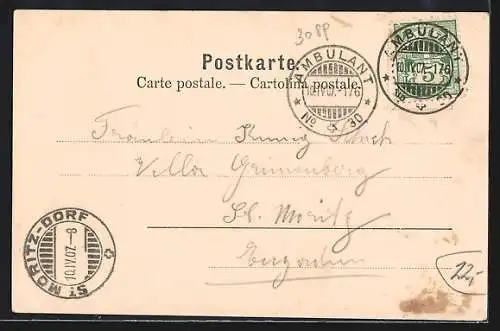 3089
Postkarte.
Carte postale. — Cartolina postale.
AMBULANT
10.IV.07.-176
No 30
AMBULANT
10.IV.07.-176
No 30
5
Fräulein
Villa Grünenberg
St. Moritz
Engadin
ST. MORITZ-DORF
10.IV.07.-8
22,-